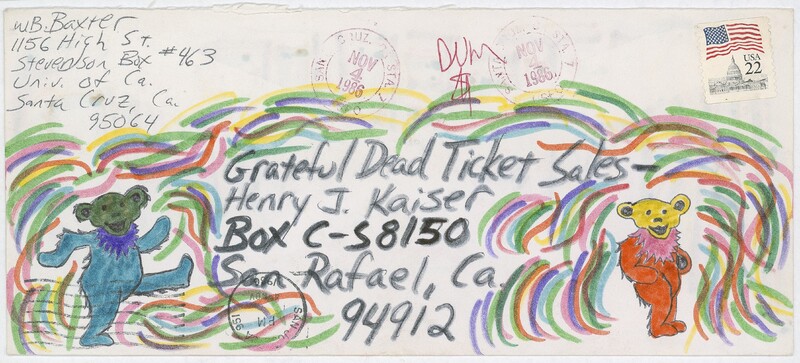 W.B. Baxter
1156 High St.
Stevenson Box #463
Univ. of Ca.
Santa Cruz, Ca.
95064
NOV
4
1986
NOV
4
1986
USA
22
Grateful Dead Ticket Sales—
Henry J. Kaiser
Box C-S8150
San Rafael, Ca.
94912
PM